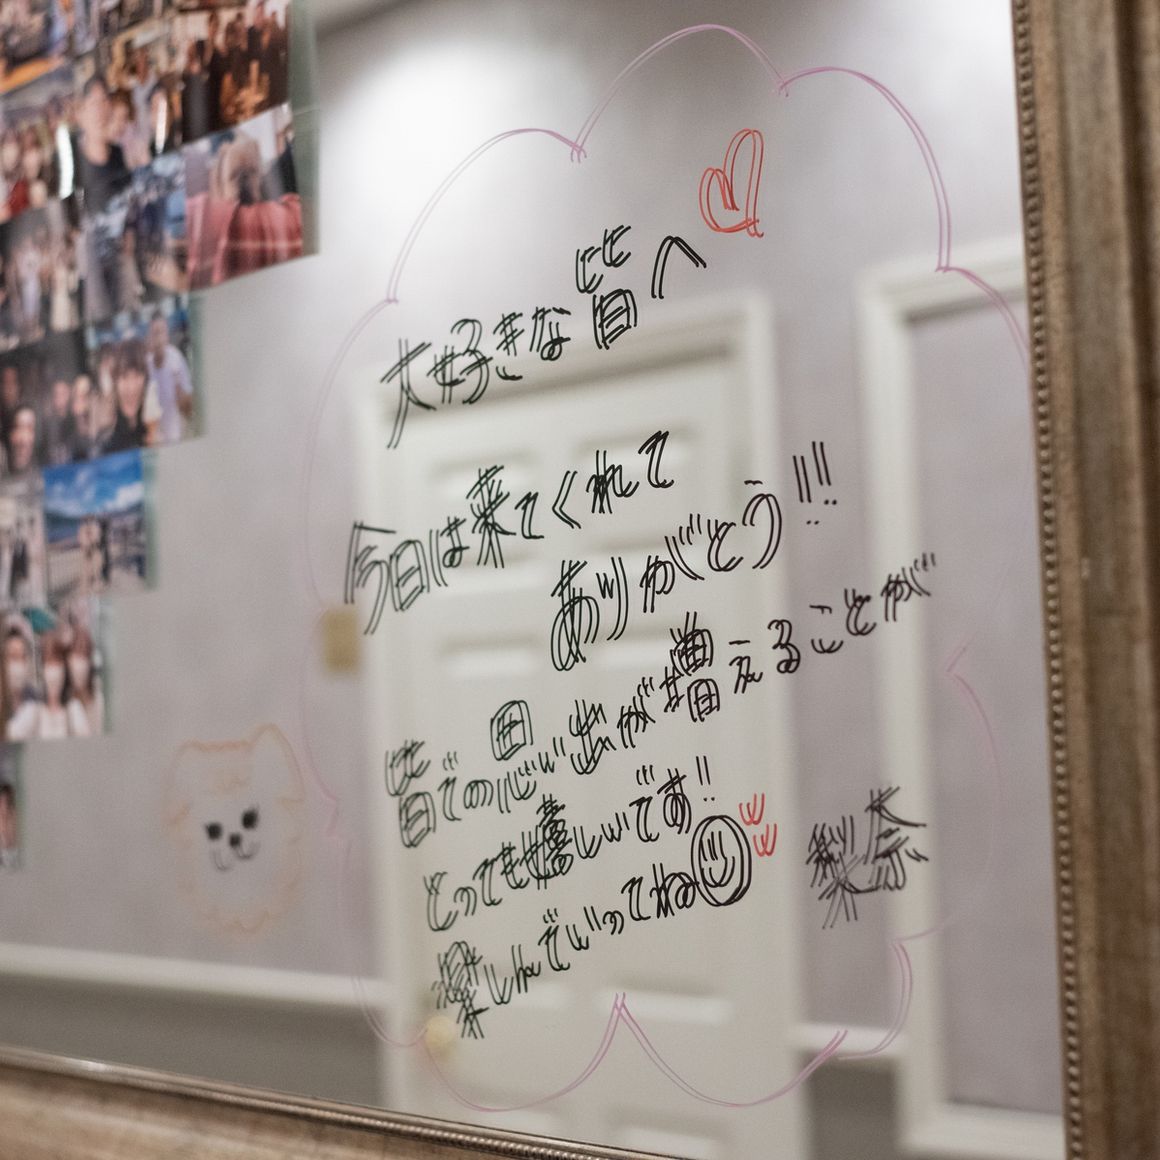 大好きな皆へ
今日は来てくれて
ありがとう!!
皆での思い出が増えることが
とっても嬉しいです!!
楽しんでいってね